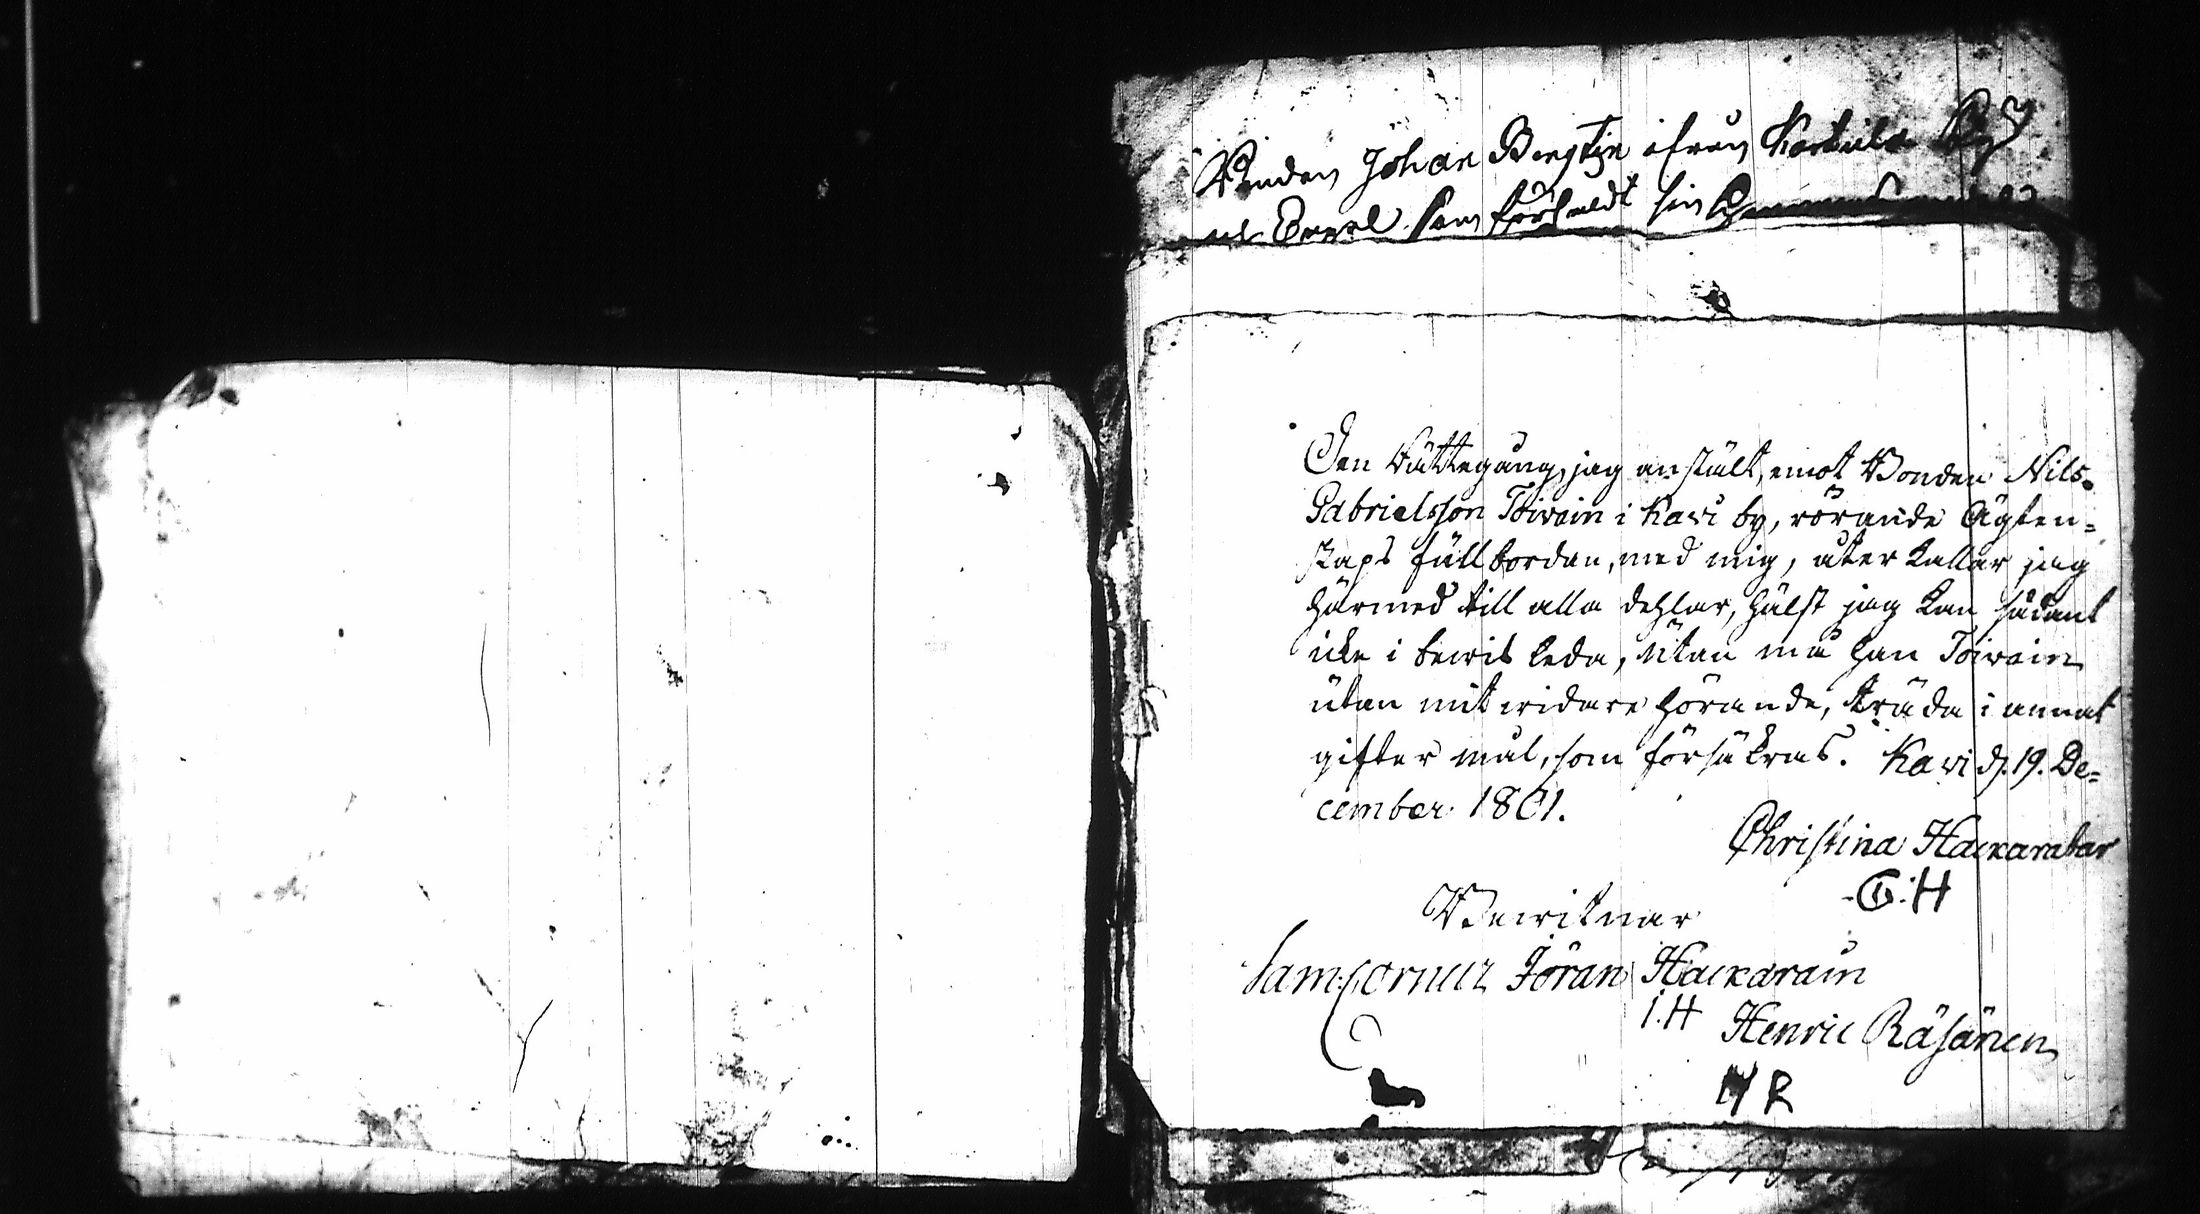 Bonden Johan Bengtzon ifrån Kaskula By
som förhaldt sin
Den Rättegång, jag anstält, emot Bonden Nils
Gabrielsson Toivain i Kavi by, rörande Ägten=
skaps fullbordan, med mig, återkallar jag
härmed till alla dehlar, hälst jag kan sådant
icke i bewis leda, utan må han Toivain
utan mit widare hörande, träda i annat
giftermål, som försäkras. Kavi d. 19. De=
cember 1801.
Christina Hackaratar
C:H
Bewitnar
Sam: Cornér Jöran Hackarain
I.H Henric Räsänen
H R